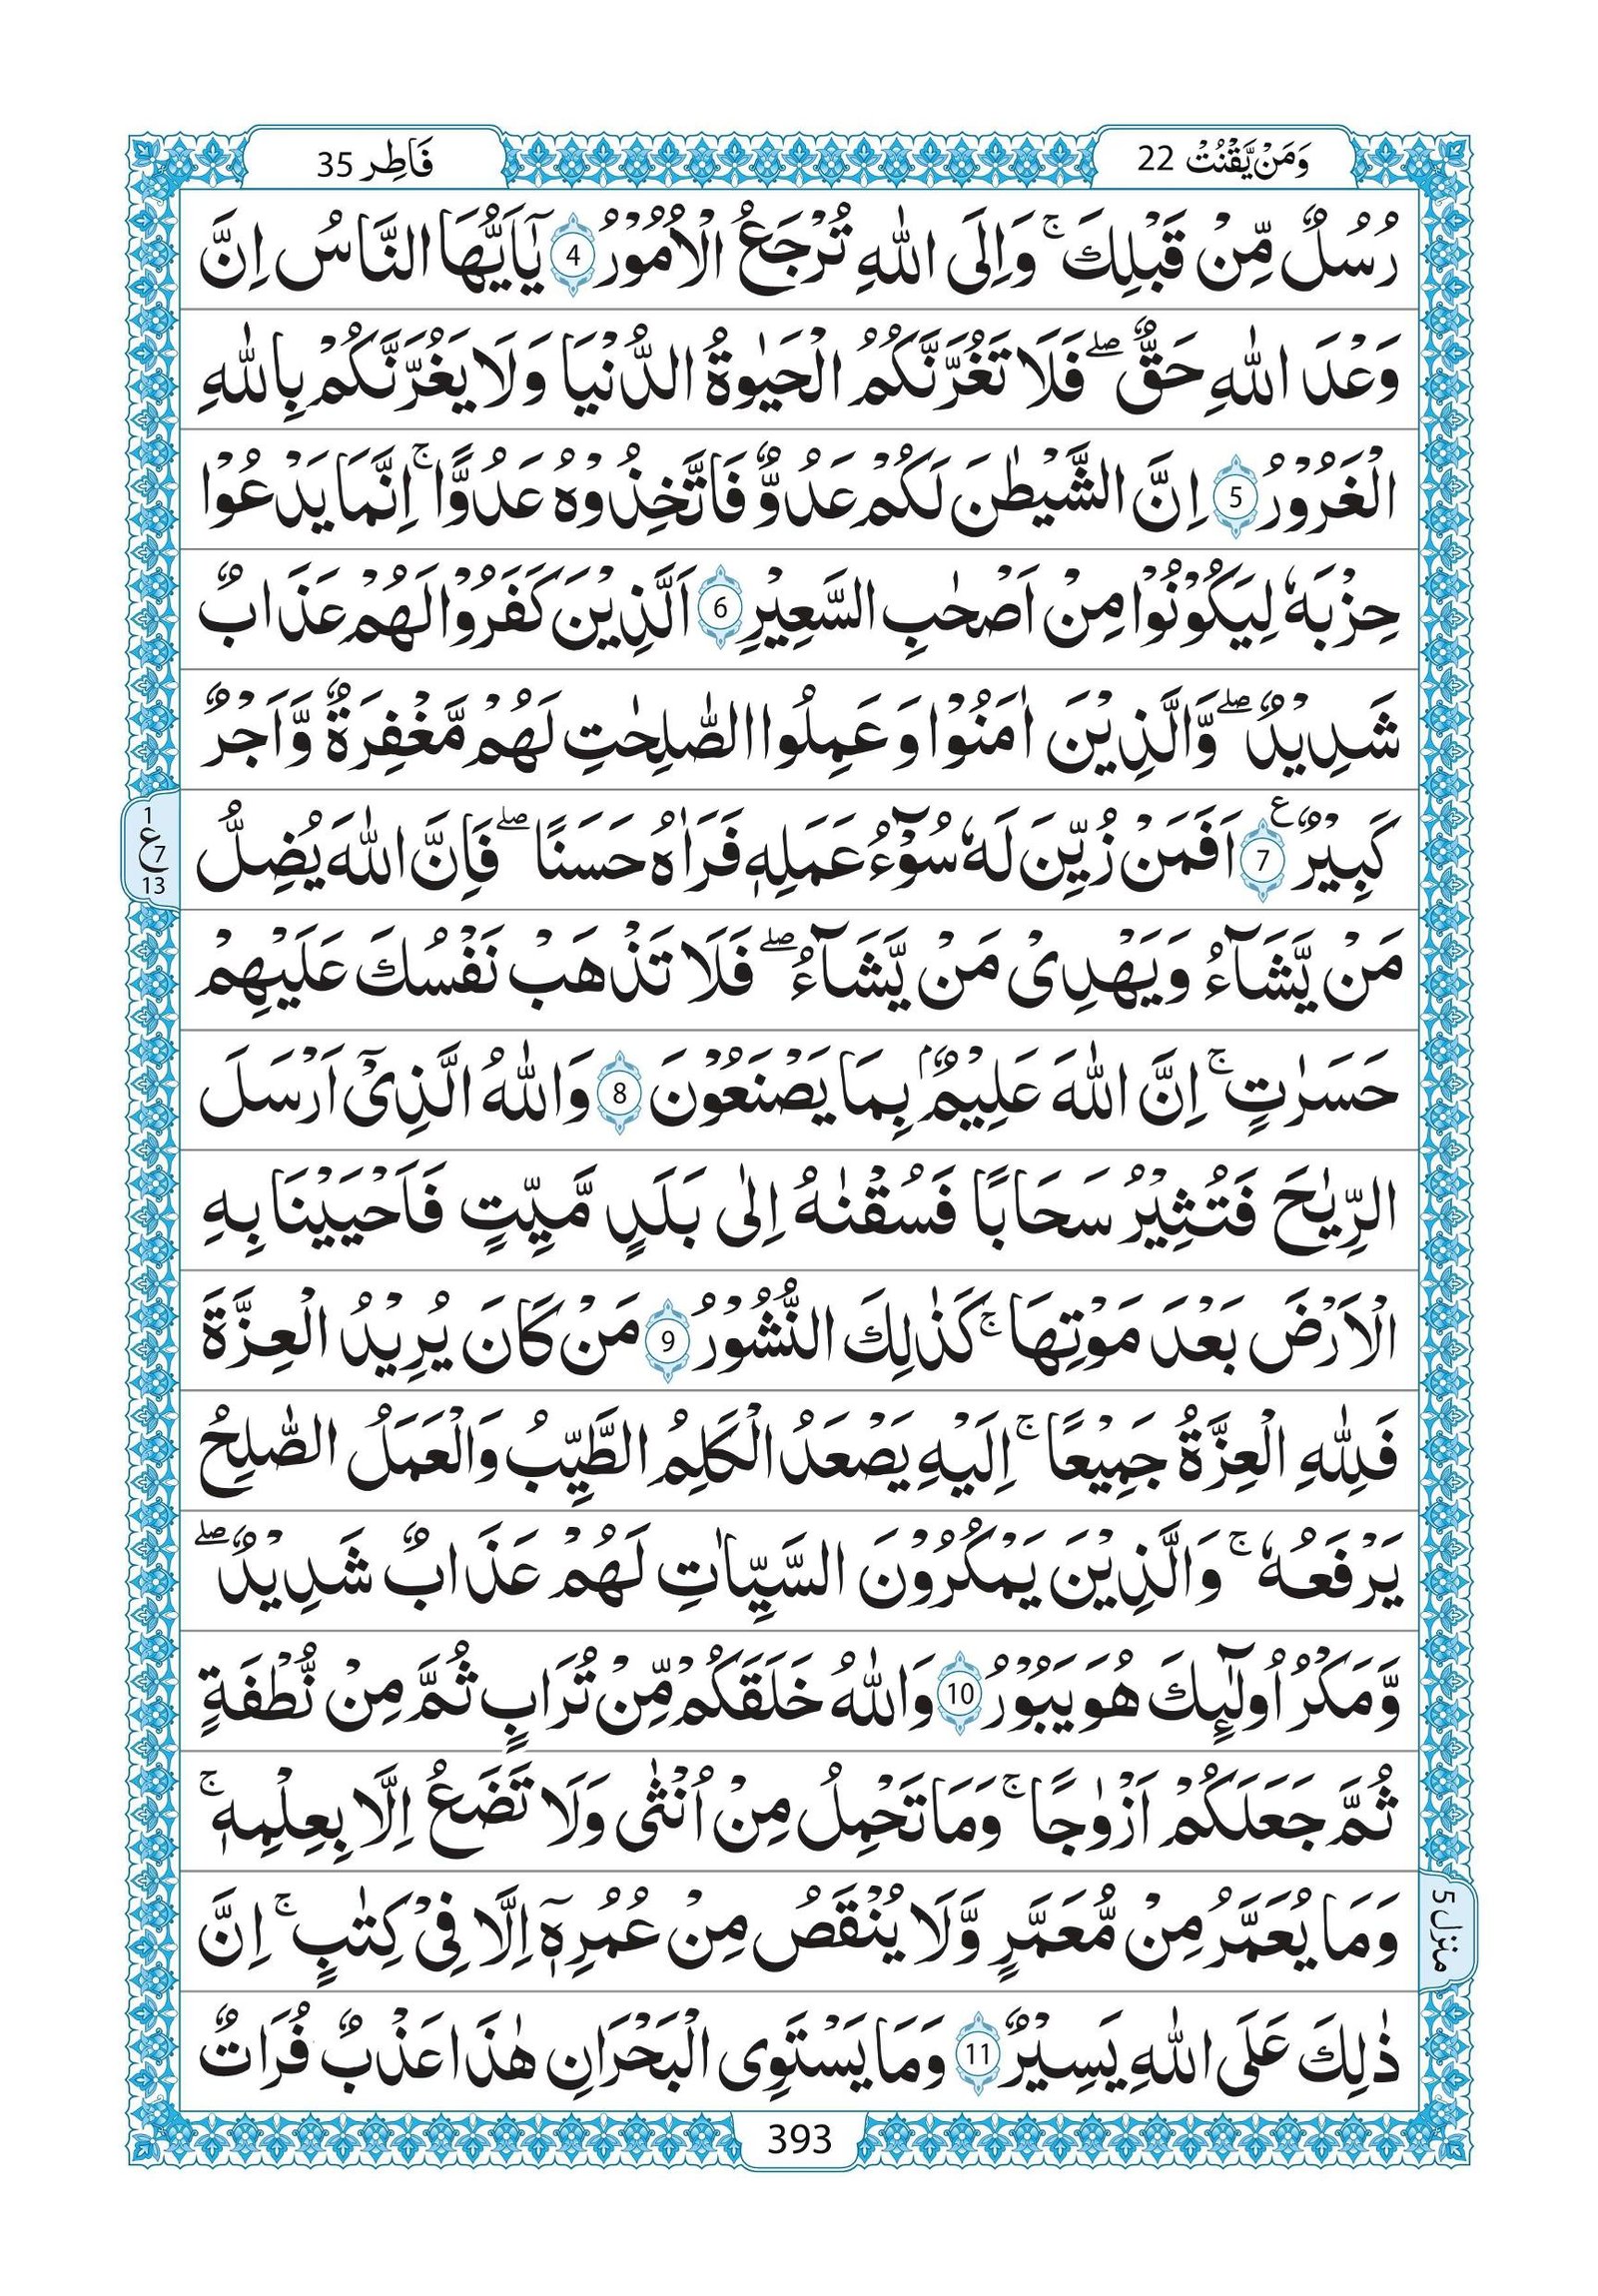 وَمَنْ يَّقْنُتْ 22
فَاطِر 35
رُسُلٌ مِّنْ قَبْلِكَ ۚ وَاِلَى اللّٰهِ تُرْجَعُ الْاُمُوْرُ 4 يٰۤاَيُّهَا النَّاسُ اِنَّ
وَعْدَ اللّٰهِ حَقٌّ ۖ فَلَا تَغُرَّنَّكُمُ الْحَيٰوةُ الدُّنْيَا وَلَا يَغُرَّنَّكُمْ بِاللّٰهِ
الْغَرُوْرُ 5 اِنَّ الشَّيْطٰنَ لَكُمْ عَدُوٌّ فَاتَّخِذُوْهُ عَدُوًّا ۚ اِنَّمَا يَدْعُوْا
حِزْبَهٗ لِيَكُوْنُوْا مِنْ اَصْحٰبِ السَّعِيْرِ 6 اَلَّذِيْنَ كَفَرُوْا لَهُمْ عَذَابٌ
شَدِيْدٌ ۖ وَّالَّذِيْنَ اٰمَنُوْا وَ عَمِلُوا الصّٰلِحٰتِ لَهُمْ مَّغْفِرَةٌ وَّاَجْرٌ
كَبِيْرٌ 7 ع اَفَمَنْ زُيِّنَ لَهٗ سُوْٓءُ عَمَلِهٖ فَرَاٰهُ حَسَنًا ۖ فَاِنَّ اللّٰهَ يُضِلُّ
1
ع 7
13
مَنْ يَّشَآءُ وَيَهْدِىْ مَنْ يَّشَآءُ ۖ فَلَا تَذْهَبْ نَفْسُكَ عَلَيْهِمْ
حَسَرٰتٍ ۚ اِنَّ اللّٰهَ عَلِيْمٌۢ بِمَا يَصْنَعُوْنَ 8 وَاللّٰهُ الَّذِىْۤ اَرْسَلَ
الرِّيٰحَ فَتُثِيْرُ سَحَابًا فَسُقْنٰهُ اِلٰى بَلَدٍ مَّيِّتٍ فَاَحْيَيْنَا بِهِ
الْاَرْضَ بَعْدَ مَوْتِهَا ۚ كَذٰلِكَ النُّشُوْرُ 9 مَنْ كَانَ يُرِيْدُ الْعِزَّةَ
فَلِلّٰهِ الْعِزَّةُ جَمِيْعًا ۚ اِلَيْهِ يَصْعَدُ الْكَلِمُ الطَّيِّبُ وَالْعَمَلُ الصّٰلِحُ
يَرْفَعُهٗ ۚ وَالَّذِيْنَ يَمْكُرُوْنَ السَّيِّاٰتِ لَهُمْ عَذَابٌ شَدِيْدٌ ۖ
وَّمَكْرُ اُولٰٓئِكَ هُوَ يَبُوْرُ 10 وَاللّٰهُ خَلَقَكُمْ مِّنْ تُرَابٍ ثُمَّ مِنْ نُّطْفَةٍ
ثُمَّ جَعَلَكُمْ اَزْوٰجًا ۚ وَمَا تَحْمِلُ مِنْ اُنْثٰى وَلَا تَضَعُ اِلَّا بِعِلْمِهٖ ۚ
وَمَا يُعَمَّرُ مِنْ مُّعَمَّرٍ وَّلَا يُنْقَصُ مِنْ عُمُرِهٖۤ اِلَّا فِىْ كِتٰبٍ ۚ اِنَّ
منزل 5
ذٰلِكَ عَلَى اللّٰهِ يَسِيْرٌ 11 وَمَا يَسْتَوِى الْبَحْرَانِ هٰذَا عَذْبٌ فُرَاتٌ
393